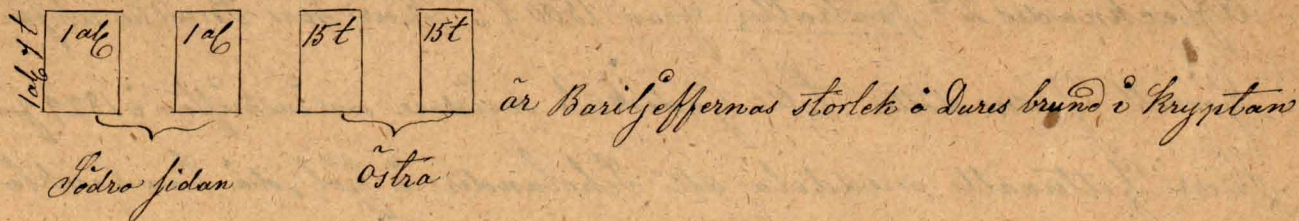 1 al 7 t
1 al 1 al 15 t 15 t
är Bariljeffernas storlek å Dares brund i Kryptan
Södra sidan Östra